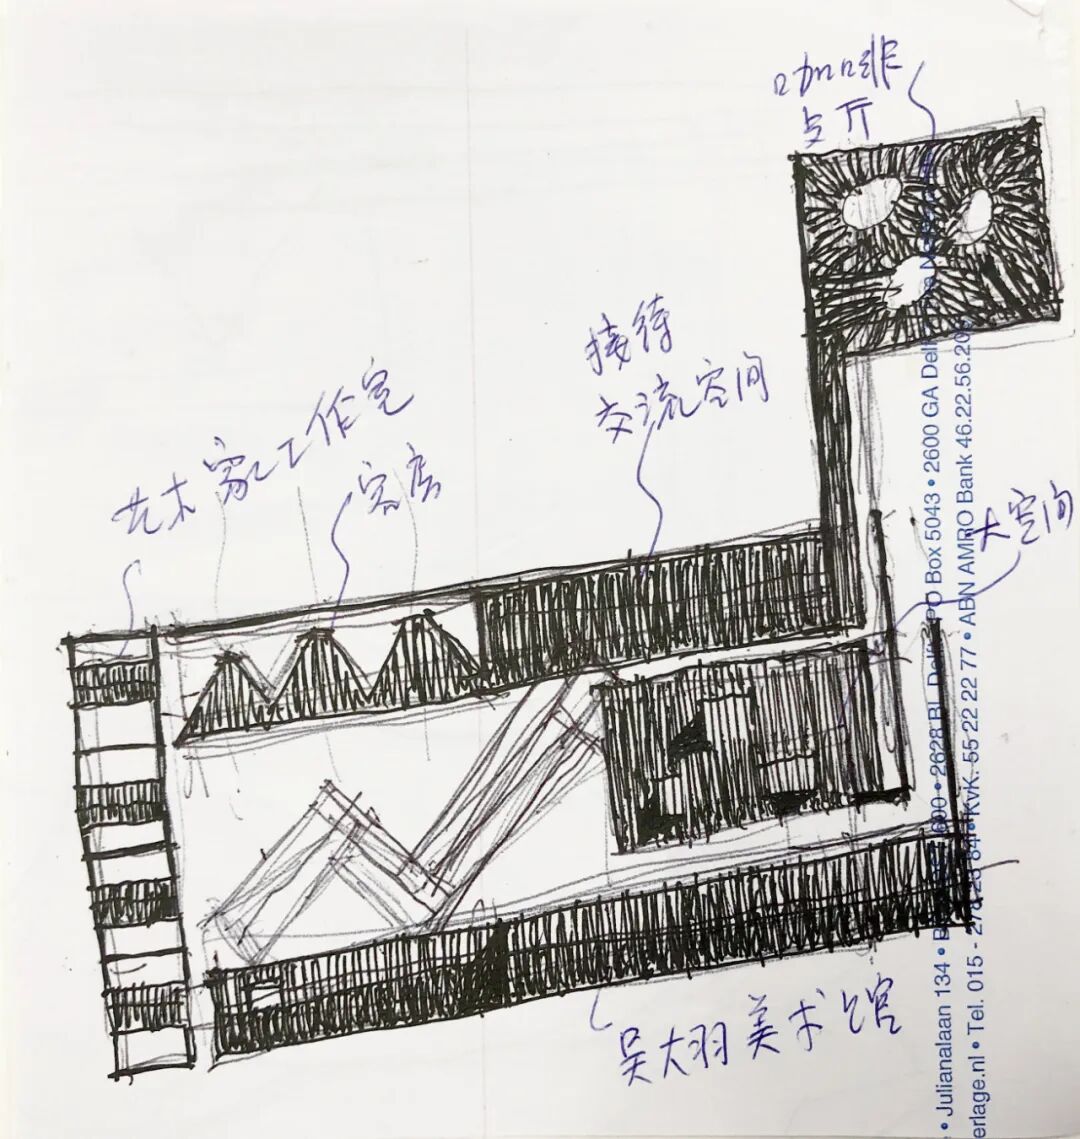 咖啡
厅
接待
交流空间
艺术家工作室
客房
大空间
吴大羽美术馆
• Julianalaan 134 • 600 • 2628 BL Delft PO Box 5043 • 2600 GA Delft
erlage.nl • Tel. 015 - KvK. 55 22 22 77 • ABN AMRO Bank 46.22.56.20